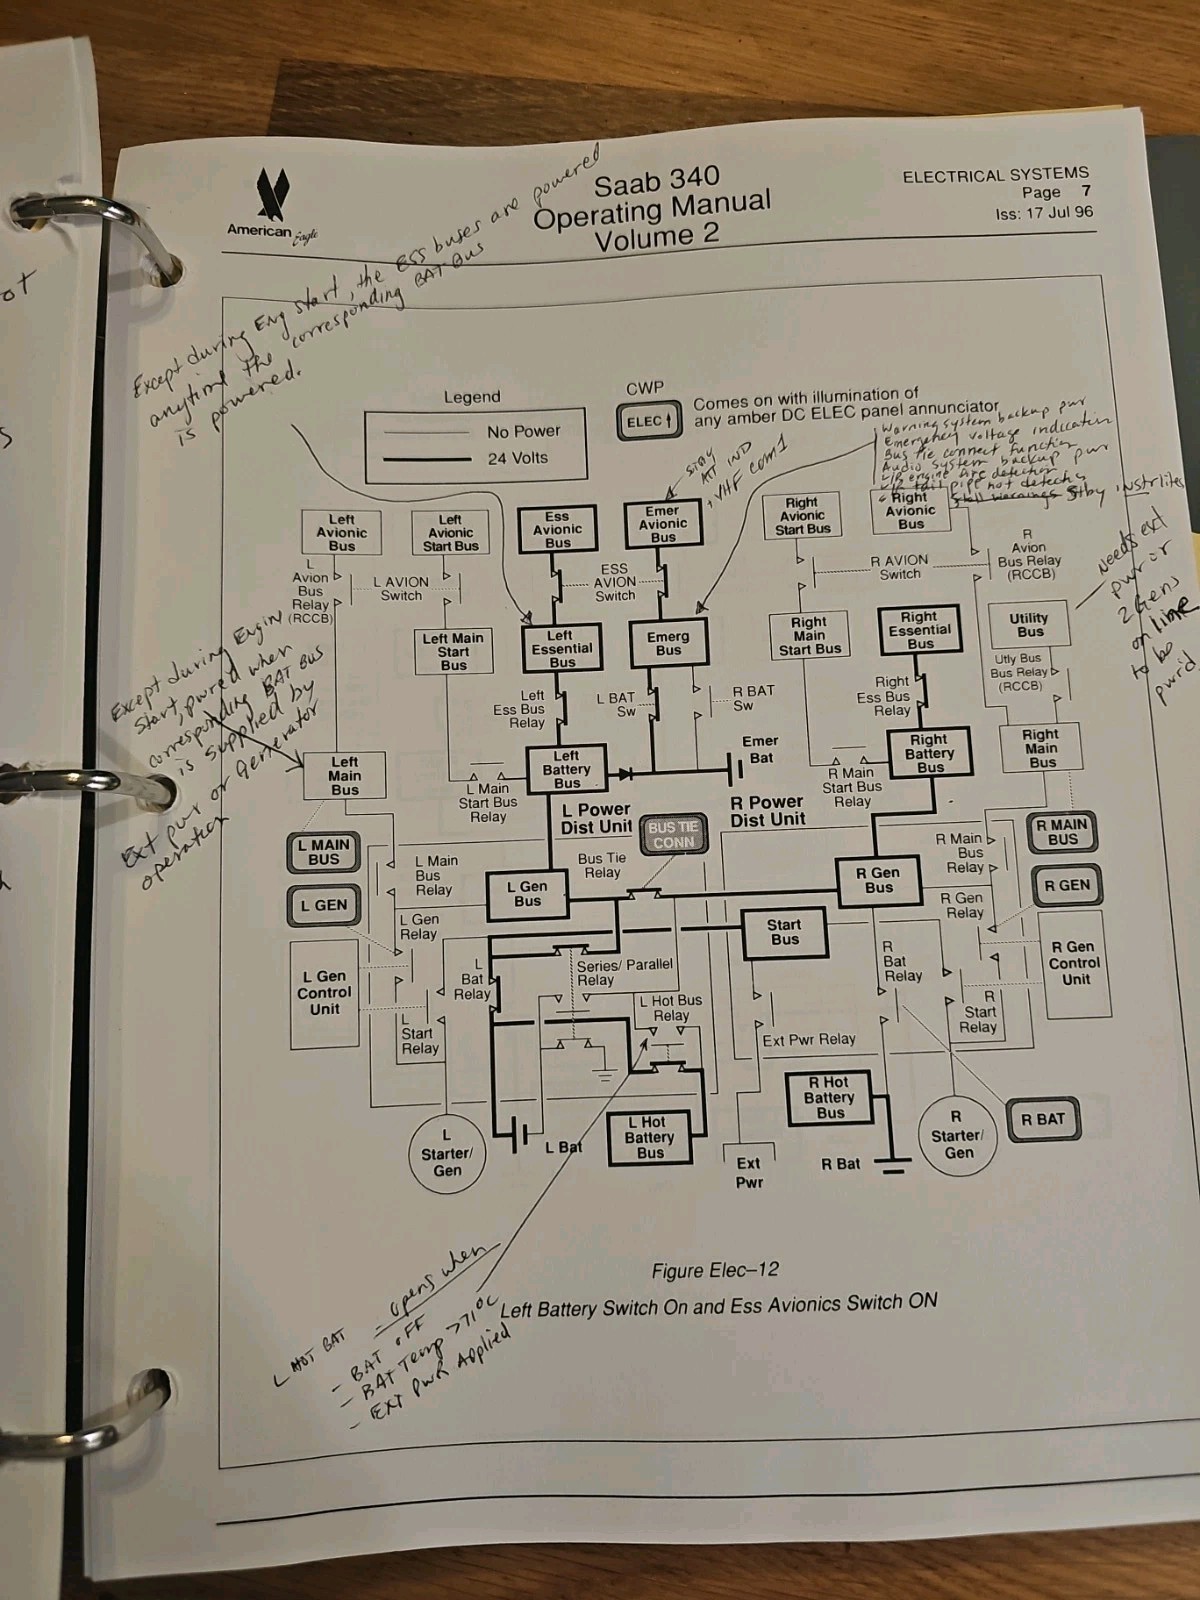 ot
s
American
Eagle
Saab 340
Operating Manual
Volume 2
ELECTRICAL SYSTEMS
Page 7
Iss: 17 Jul 96
Except during Eng start, the Ess buses are powered
anytime the corresponding BAT Bus
is powered.
Legend
No Power
24 Volts
CWP
ELEC↑
Comes on with illumination of
any amber DC ELEC panel annunciator
Warning system backup pwr
Emergency voltage indication
Bus tie connect function
Audio system backup pwr
L/R engine fire detection
L/R tail pipe hot detect
Stall warnings Stby instr lites
stby
ATT IND
, VHF com 1
Left
Avionic
Bus
Left
Avionic
Start Bus
Ess
Avionic
Bus
Emer
Avionic
Bus
Right
Avionic
Start Bus
Right
Avionic
Bus
L
Avion
Bus
Relay
(RCCB)
L AVION
Switch
ESS
AVION
Switch
R AVION
Switch
R
Avion
Bus Relay
(RCCB)
Needs ext
pwr or
2 Gens
on line
to be
pwrd
Left Main
Start
Bus
Left
Essential
Bus
Emerg
Bus
Right
Main
Start Bus
Right
Essential
Bus
Utility
Bus
Utly Bus
Bus Relay
(RCCB)
Except during Engine
Start, pwred when
corresponding BAT BUS
is supplied by
Ext pwr or generator
operation
Left
Ess Bus
Relay
L BAT
Sw
R BAT
Sw
Right
Ess Bus
Relay
Left
Main
Bus
L Main
Start Bus
Relay
Left
Battery
Bus
Emer
Bat
R Main
Start Bus
Relay
Right
Battery
Bus
Right
Main
Bus
L Power
Dist Unit
R Power
Dist Unit
BUS TIE
CONN
L MAIN
BUS
L GEN
L Main
Bus
Relay
Bus Tie
Relay
R Main
Bus
Relay
R MAIN
BUS
R GEN
L Gen
Bus
R Gen
Bus
L Gen
Relay
Start
Bus
R Gen
Relay
L Gen
Control
Unit
L
Bat
Relay
Series/ Parallel
Relay
R
Bat
Relay
R Gen
Control
Unit
L
Start
Relay
L Hot Bus
Relay
Ext Pwr Relay
R
Start
Relay
L
Starter/
Gen
L Bat
L Hot
Battery
Bus
Ext
Pwr
R Hot
Battery
Bus
R Bat
R
Starter/
Gen
R BAT
L HOT BAT - opens when
- BAT OFF
- BAT Temp >71°C
- EXT PWR Applied
Figure Elec–12
Left Battery Switch On and Ess Avionics Switch ON